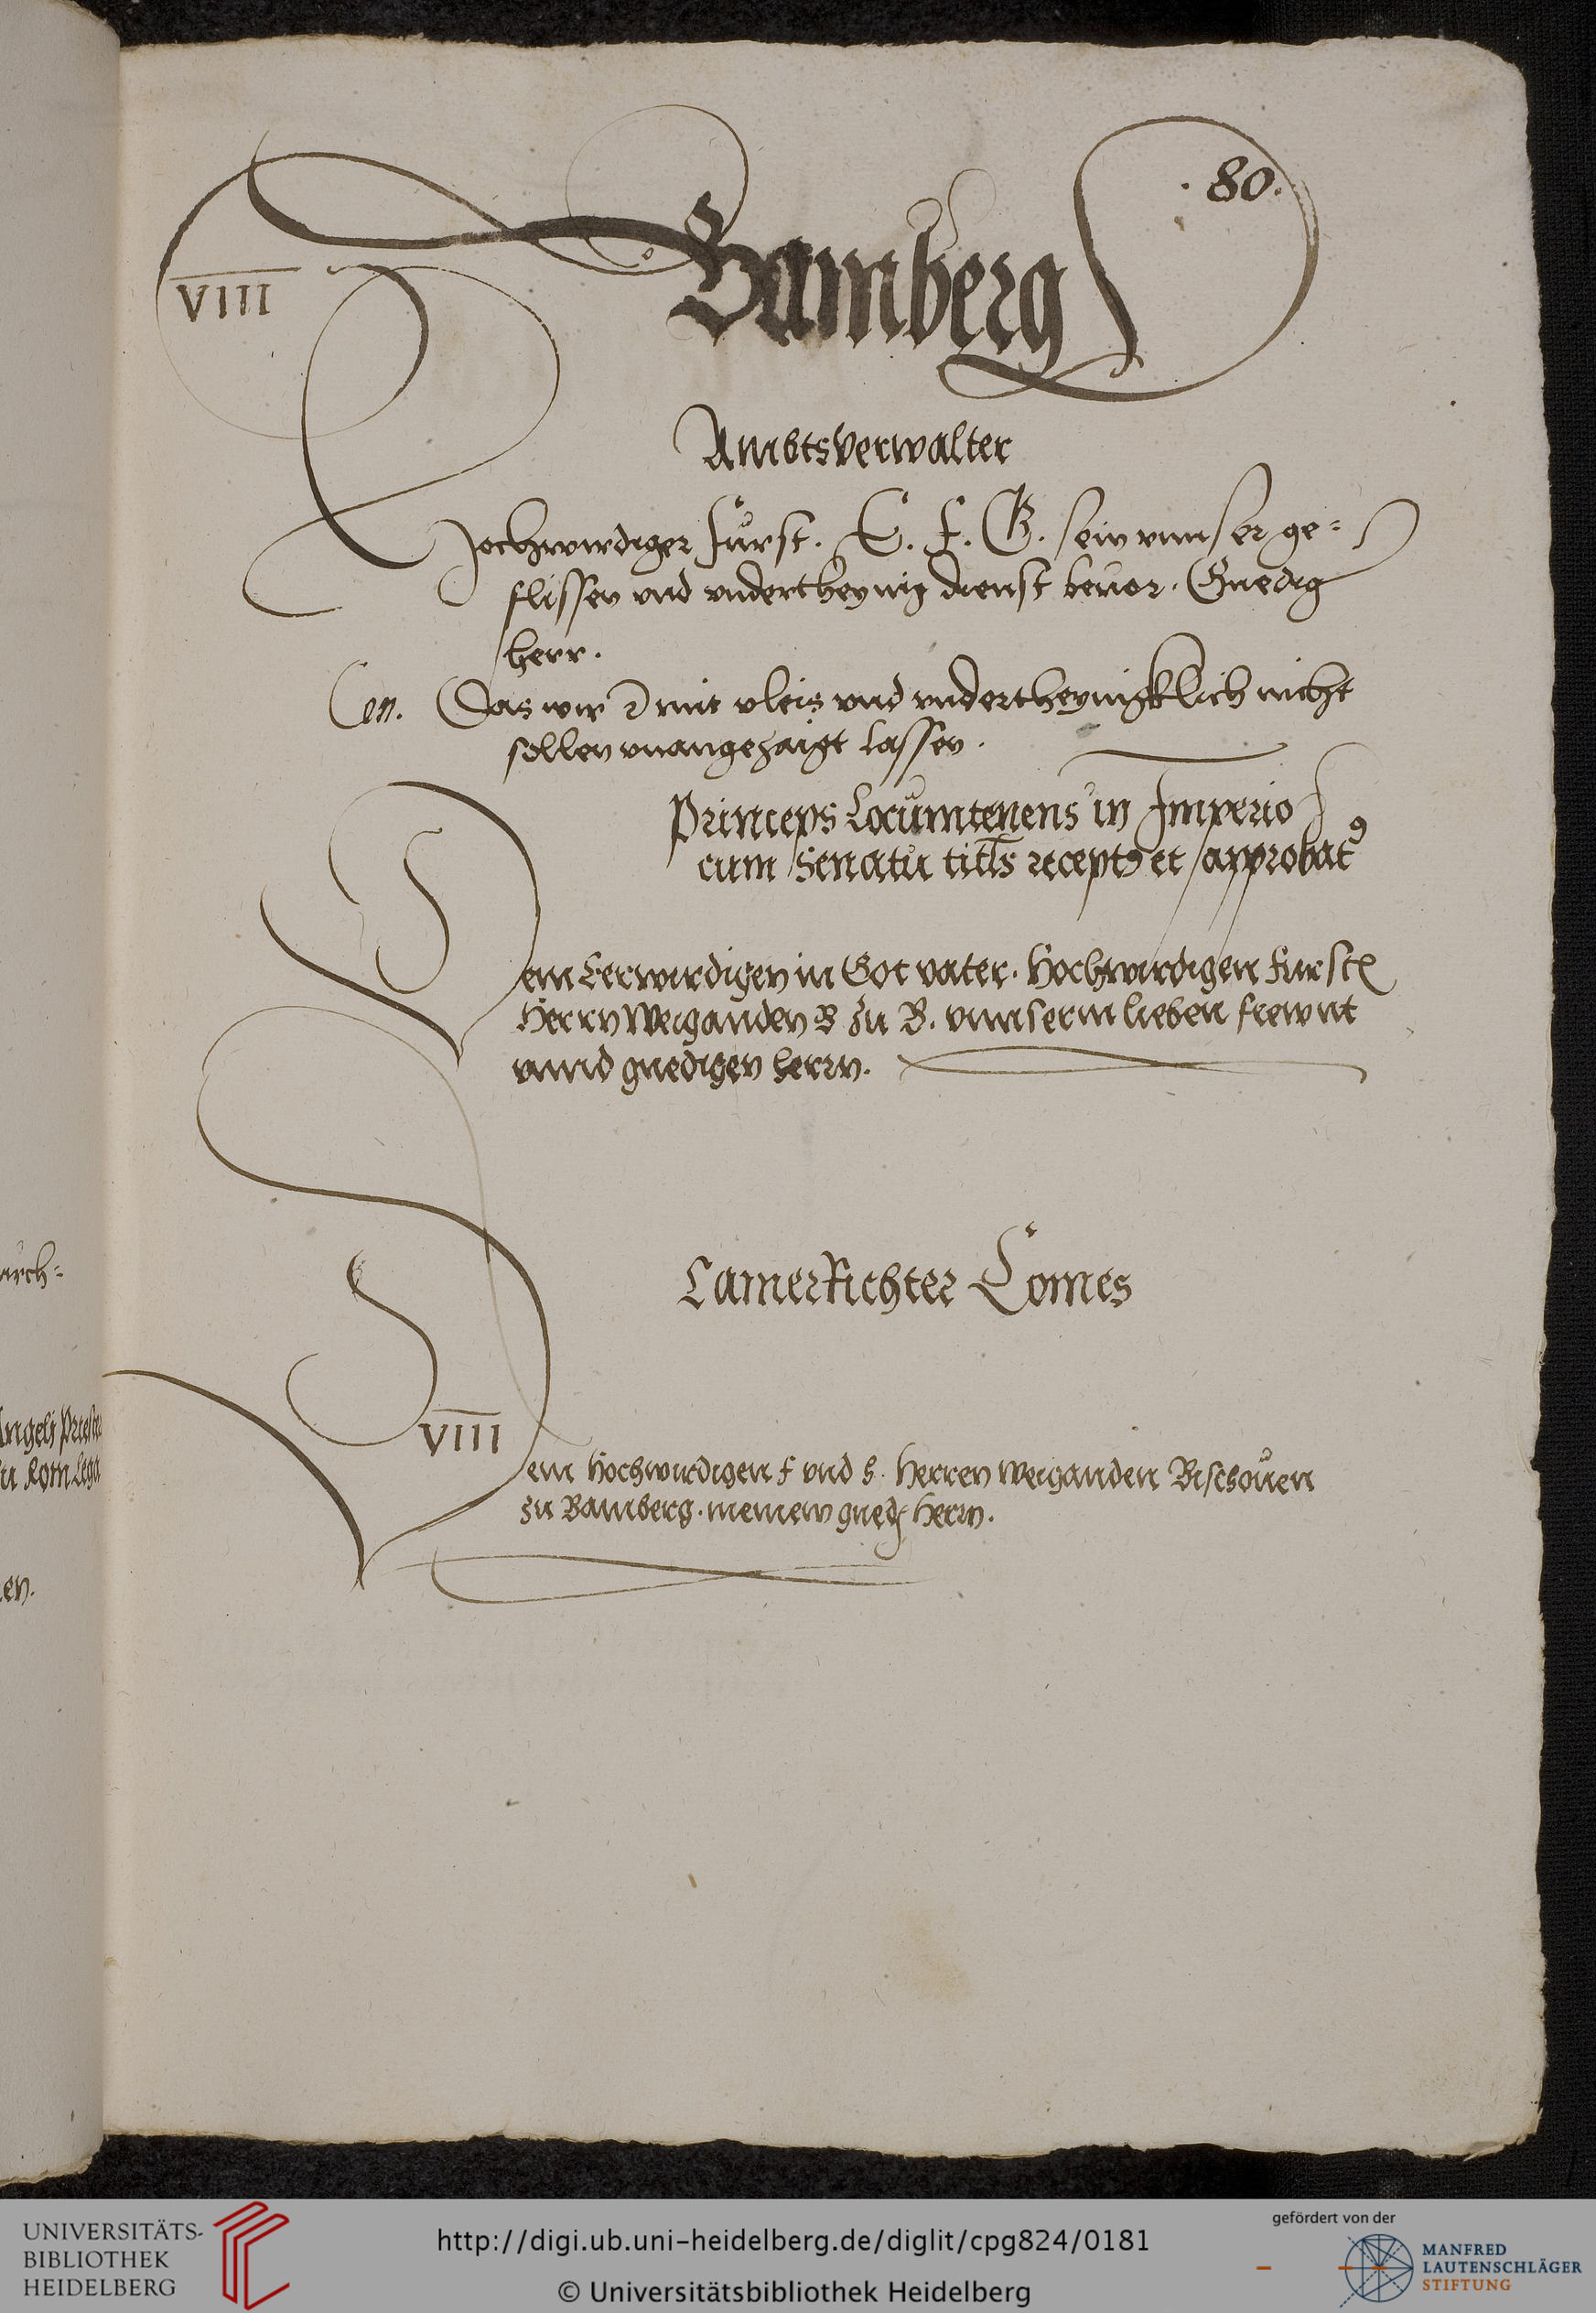 80.
VIII
Bamberg
Ambtsverwalter
Hochwirdiger fürst. E. F. G. sein vnnser ge=
flissen vnd vndertheynig dienst beuor. Gnedig
herr.
Con. Das wir mit vleis vnd vndertheynigklich nicht
sollen vnangezaigt lassen.
Princeps Locumtenens in Imperio
cum Senatu titls recept et approbat
Dem Eerwirdigen in Got vater. Hochwirdigen furstn
Herrn Weiganden B zu B. vnnserm lieben frewnt
vnnd gnedigen herrn.
CamerRichter Comes
VIII
Dem hochwirdigen f vnd h. Herren Weiganden Bischouen
zu Bamberg. meinem gned herrn.
arch=
Angeli Priest
zu Rom Lega
en.
UNIVERSITÄTS-
BIBLIOTHEK
HEIDELBERG
http://digi.ub.uni-heidelberg.de/diglit/cpg824/0181
© Universitätsbibliothek Heidelberg
gefördert von der
MANFRED
LAUTENSCHLÄGER
STIFTUNG